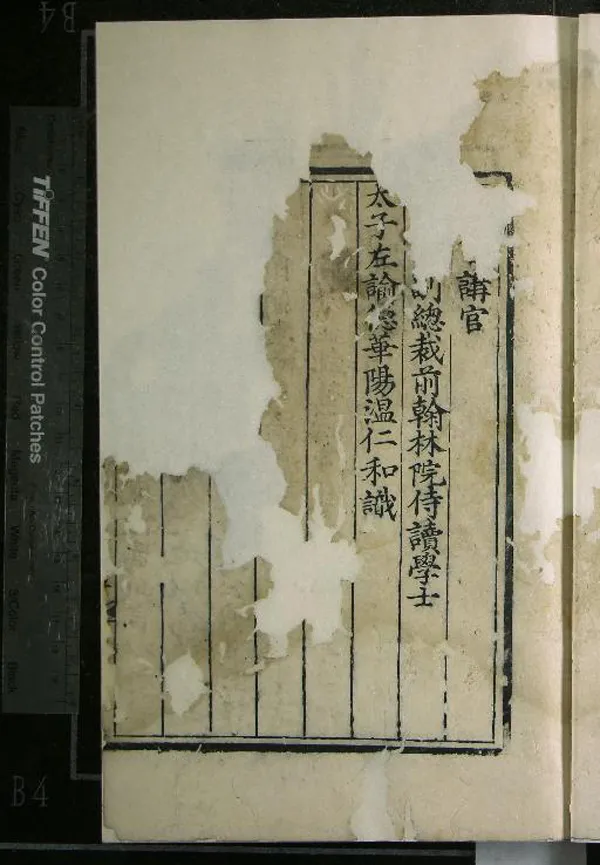 講官
副總裁前翰林院侍讀學士
太子左諭德華陽溫仁和識
TIFFEN Color Control Patches
B4
B4